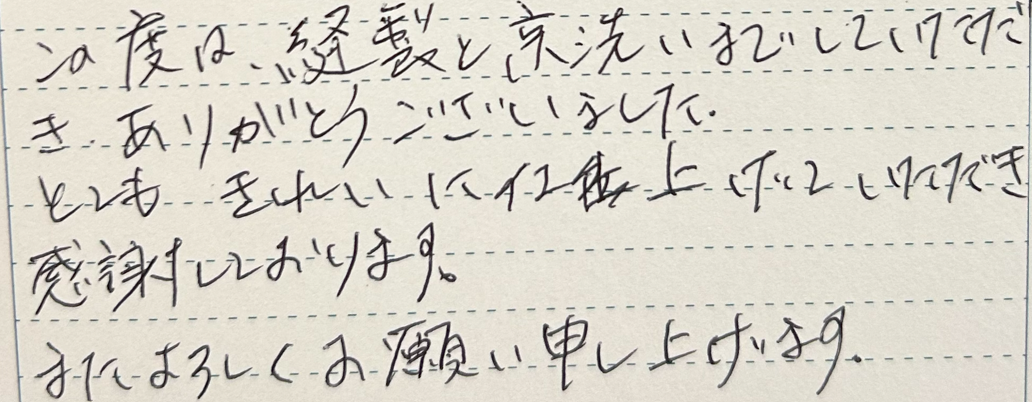 この度は、縫製と京洗いまでしていただ
き、ありがとうございました。
とても きれいに仕上げて いただき
感謝しております。
またよろしくお願い申し上げます。